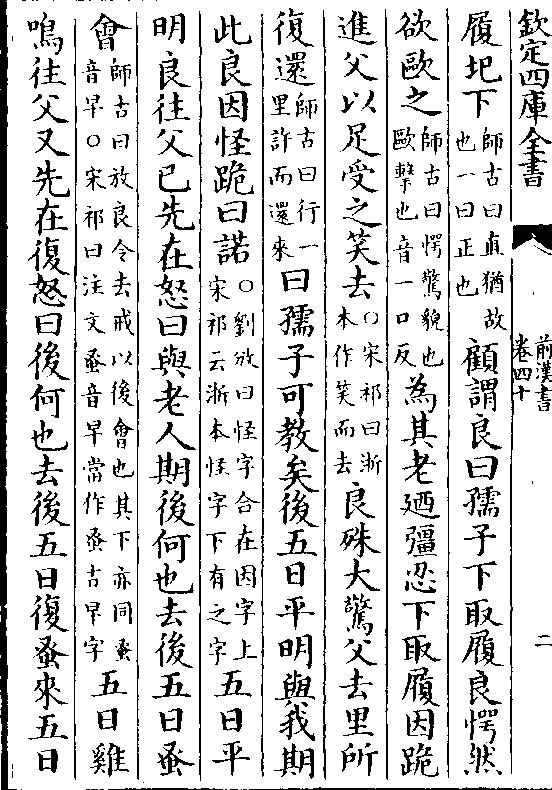 欽定四庫全書
前漢書
卷四十
二
履圯下師古曰直猶故也一曰正也顧謂良曰孺子下取履良愕然
欲歐之師古曰愕驚貌也歐擊也音一口反為其老廼彊忍下取履因跪
進父以足受之笑去○宋祁曰浙本作笑而去良殊大驚父去里所
復還師古曰行一里許而還來曰孺子可教矣後五日平明與我期
此良因怪跪曰諾○劉攽曰怪字合在因字上宋祁云浙本怪字下有之字五日平
明良往父已先在怒曰與老人期後何也去後五日蚤
會師古曰放良令去戒以後會也其下亦同蚤音早○宋祁曰注文蚤音早當作蚤古早字五日雞
鳴往父又先在復怒曰後何也去後五日復蚤來五日